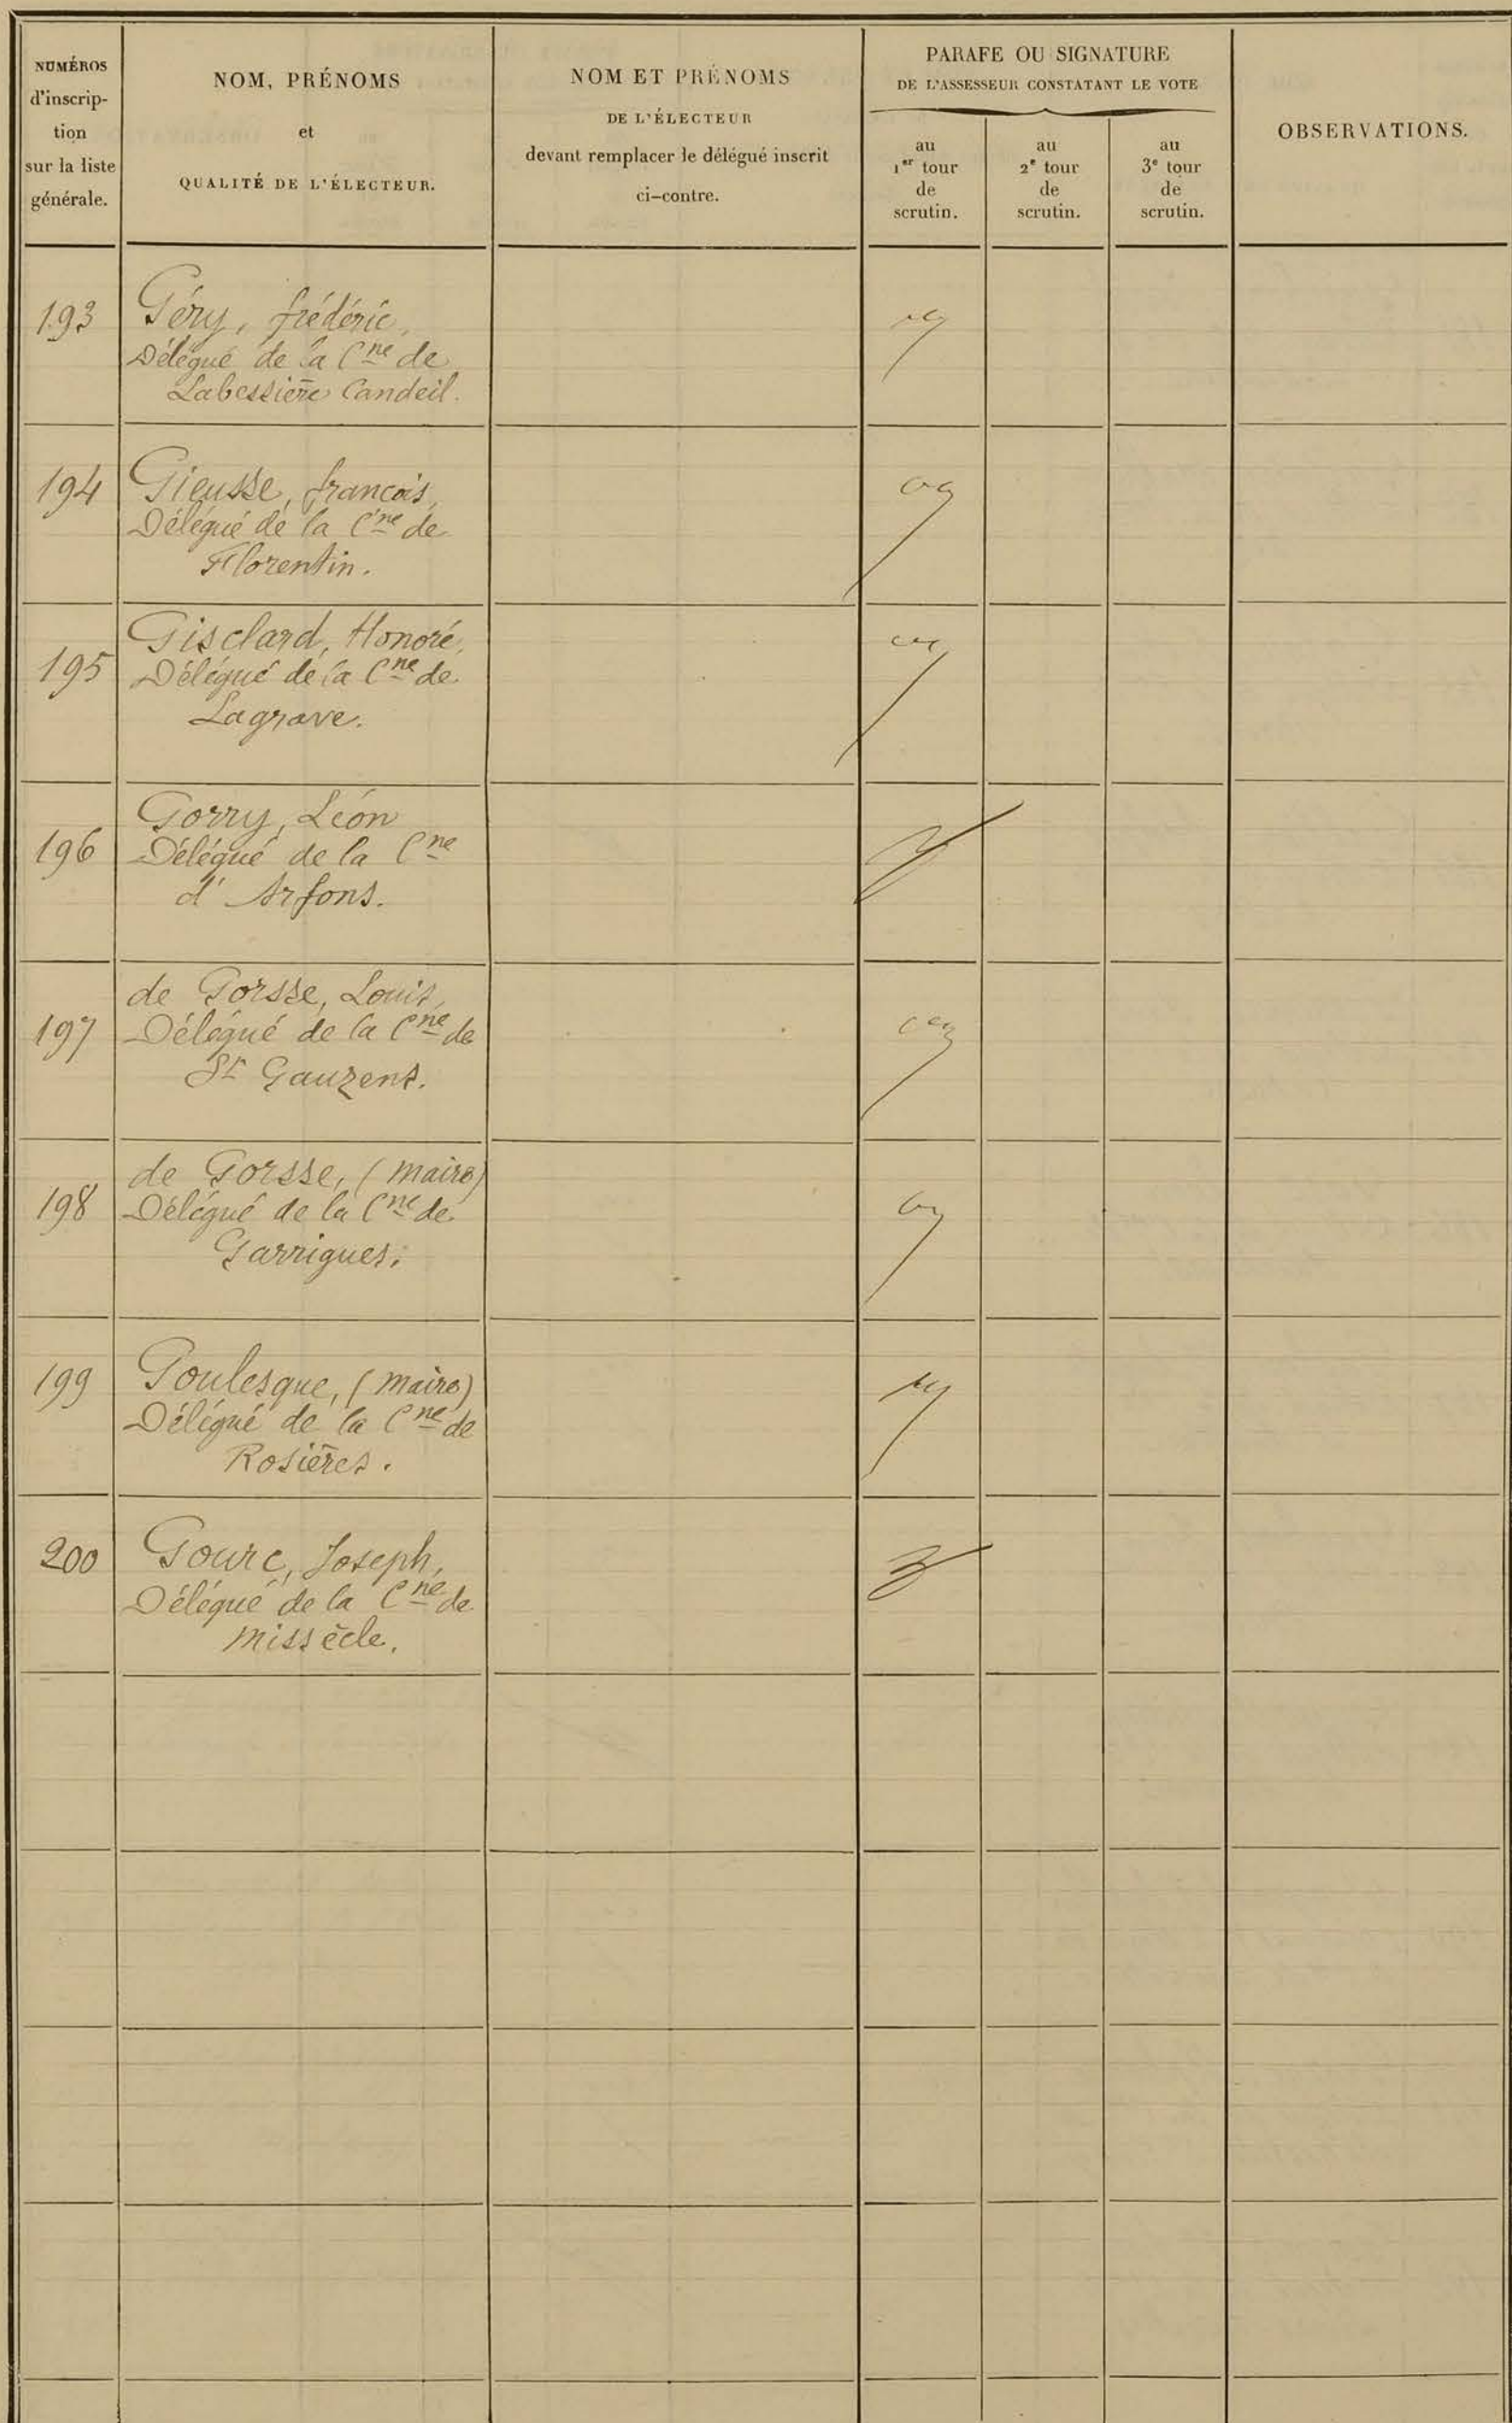 NUMÉROS
d'inscrip-
tion
sur la liste
générale.
NOM, PRÉNOMS
et
QUALITÉ DE L'ÉLECTEUR.
NOM ET PRÉNOMS
DE L'ÉLECTEUR
devant remplacer le délégué inscrit
ci-contre.
PARAFE OU SIGNATURE
DE L'ASSESSEUR CONSTATANT LE VOTE
au
1er tour
de
scrutin.
au
2e tour
de
scrutin.
au
3e tour
de
scrutin.
OBSERVATIONS.
193 Géry, frédéric,
Délégué de la Cne de
Labessière Candeil.
194 Gieusse, françois,
Délégué de la Cne de
Florentin.
195 Gisclard, Honoré,
Délégué de la Cne de
Lagrave.
196 Gorry, Léon
Délégué de la Cne
d'Arfons.
197 de Gorsse, Louis,
Délégué de la Cne de
St Gauzens.
198 de Gorsse, (maire)
Délégué de la Cne de
Garrigues.
199 Goulesque, (maire)
Délégué de la Cne de
Rosières.
200 Gourc, Joseph,
Délégué de la Cne de
missècle.